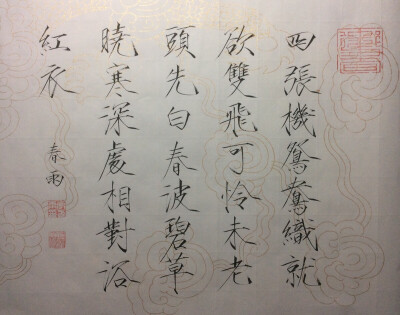 四張機鴛鴦織就
欲雙飛可憐未老
頭先白春波碧草
曉寒深處相對浴
紅衣
春雨